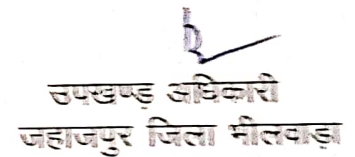 उपखण्ड अधिकारी
जहाजपुर जिला भीलवाड़ा